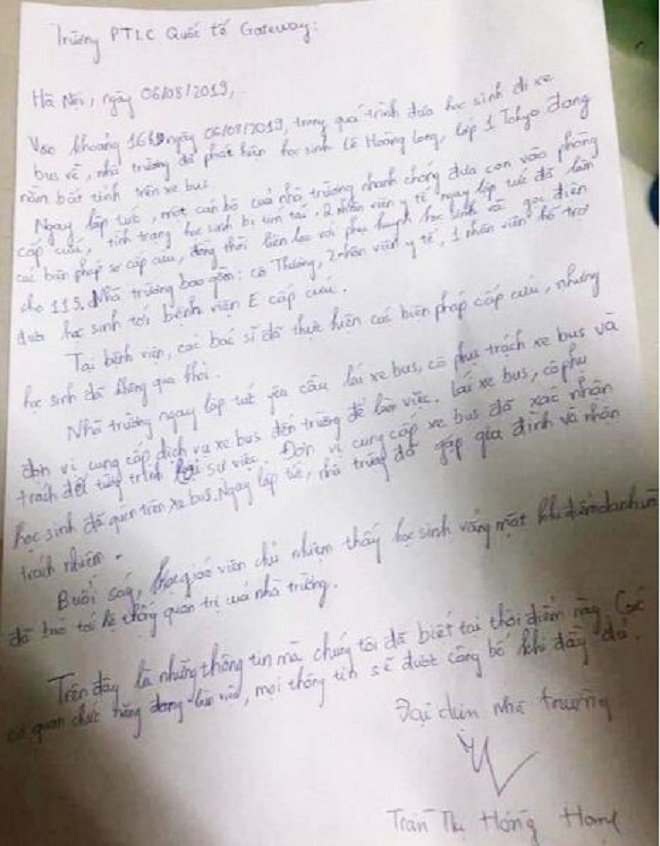 Trường PTLC Quốc tế Gateway:
Hà Nội, ngày 06/08/2019,
Vào khoảng 16h ngày 06/08/2019, trong quá trình đưa học sinh đi xe
bus về, nhà trường đã phát hiện học sinh Lê Hoàng Long, lớp 1 Tokyo đang
nằm bất tỉnh trên xe bus.
Ngay lập tức, một cán bộ của nhà trường nhanh chóng đưa con vào phòng
cấp cứu, tình trạng học sinh bị tím tái. 2 nhân viên y tế ngay lập tức đã làm
các biện pháp sơ cấp cứu, đồng thời liên lạc với phụ huynh học sinh và gọi điện
cho 115. Nhà trường bao gồm: cô Thương, 2 nhân viên y tế, 1 nhân viên hỗ trợ
đưa học sinh tới bệnh viện E cấp cứu.
Tại bệnh viện, các bác sĩ đã thực hiện các biện pháp cấp cứu, nhưng
học sinh đã không qua khỏi.
Nhà trường ngay lập tức yêu cầu lái xe bus, cô phụ trách xe bus và
đơn vị cung cấp dịch vụ xe bus đến trường để làm việc. Lái xe bus, cô phụ
trách để tường trình lại sự việc. Đơn vị cung cấp xe bus đã xác nhận
học sinh đã quên trên xe bus. Ngay lập tức, nhà trường đã gặp gia đình và nhận
trách nhiệm.
Buổi sáng, giáo viên chủ nhiệm thấy học sinh vắng mặt khi điểm danh và
đã báo tới hệ thống quản trị của nhà trường.
Trên đây là những thông tin mà chúng tôi đã biết tại thời điểm này. Các
cơ quan chức năng đang làm việc, mọi thông tin sẽ được công bố khi đầy đủ.
Đại diện nhà trường
Trần Thị Hồng Hạnh